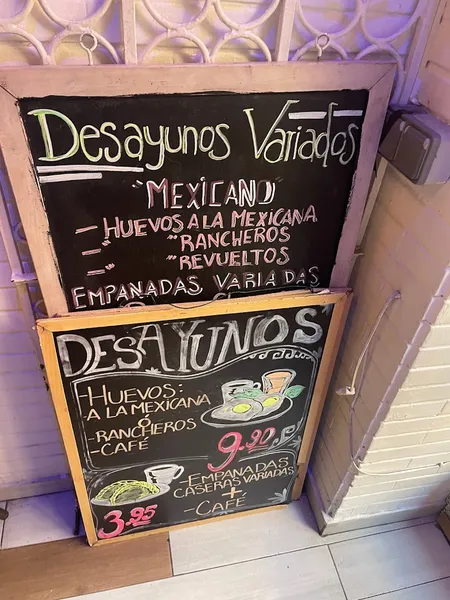 Desayunos Variados
"MEXICANO"
- HUEVOS A LA MEXICANA
- " " RANCHEROS
- " " REVUELTOS
EMPANADAS VARIADAS
DESAYUNOS
- HUEVOS:
A LA MEXICANA
O
- RANCHEROS
- CAFÉ
9.90
- EMPANADAS
CASERAS VARIADAS
+
- CAFÉ
3.95